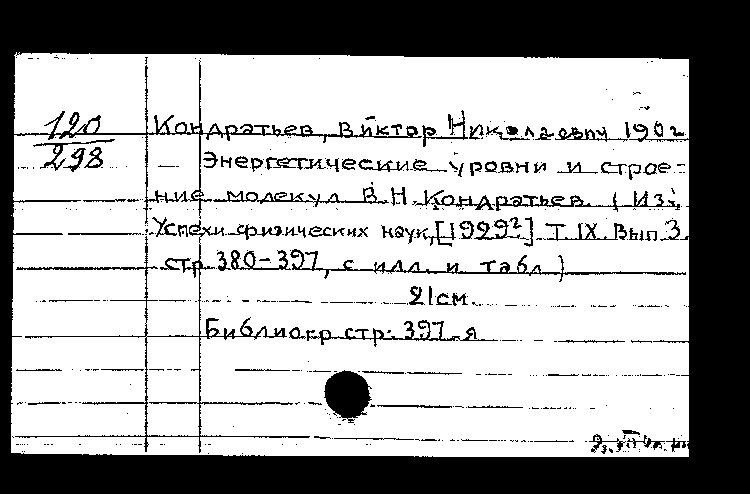 120
298
Кондратьев, Виктор Николаевич 1902
— Энергетические уровни и строе-
ние молекул В.Н. Кондратьев. (Из:
Успехи физических наук, [1929?] Т. IX. Вып. 3.
стр. 380-397, с илл. и табл.)
21см.
Библиогр стр. 397-я